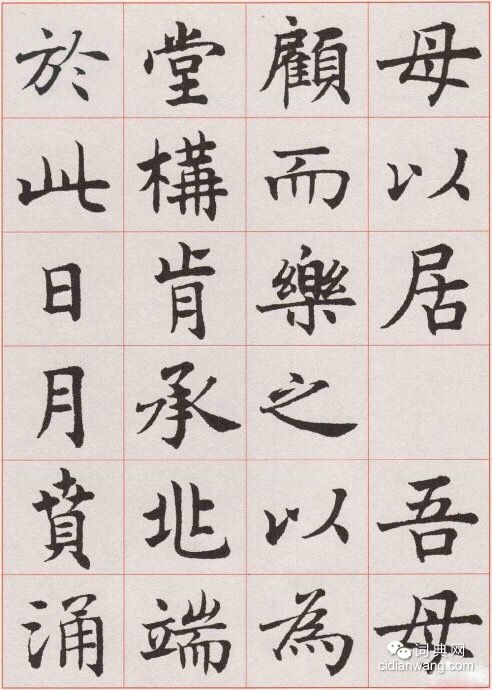 母以居 吾母
顧而樂之以為
堂構肯承兆端
於此日月賁涌
词典网
cidianwang.com